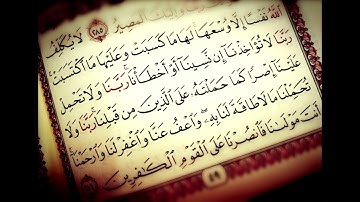 وَإِلَيْكَ ٱلْمَصِيرُ ٢٨٥ لَا يُكَلِّفُ
ٱللَّهُ نَفْسًا إِلَّا وُسْعَهَا لَهَا مَا كَسَبَتْ وَعَلَيْهَا مَا ٱكْتَسَبَتْ
رَبَّنَا لَا تُؤَاخِذْنَآ إِن نَّسِينَآ أَوْ أَخْطَأْنَا رَبَّنَا وَلَا تَحْمِلْ
عَلَيْنَآ إِصْرًا كَمَا حَمَلْتَهُۥ عَلَى ٱلَّذِينَ مِن قَبْلِنَا رَبَّنَا وَلَا
تُحَمِّلْنَا مَا لَا طَاقَةَ لَنَا بِهِۦ وَٱعْفُ عَنَّا وَٱغْفِرْ لَنَا وَٱرْحَمْنَآ
أَنتَ مَوْلَىٰنَا فَٱنصُرْنَا عَلَى ٱلْقَوْمِ ٱلْكَٰفِرِينَ
٤٩